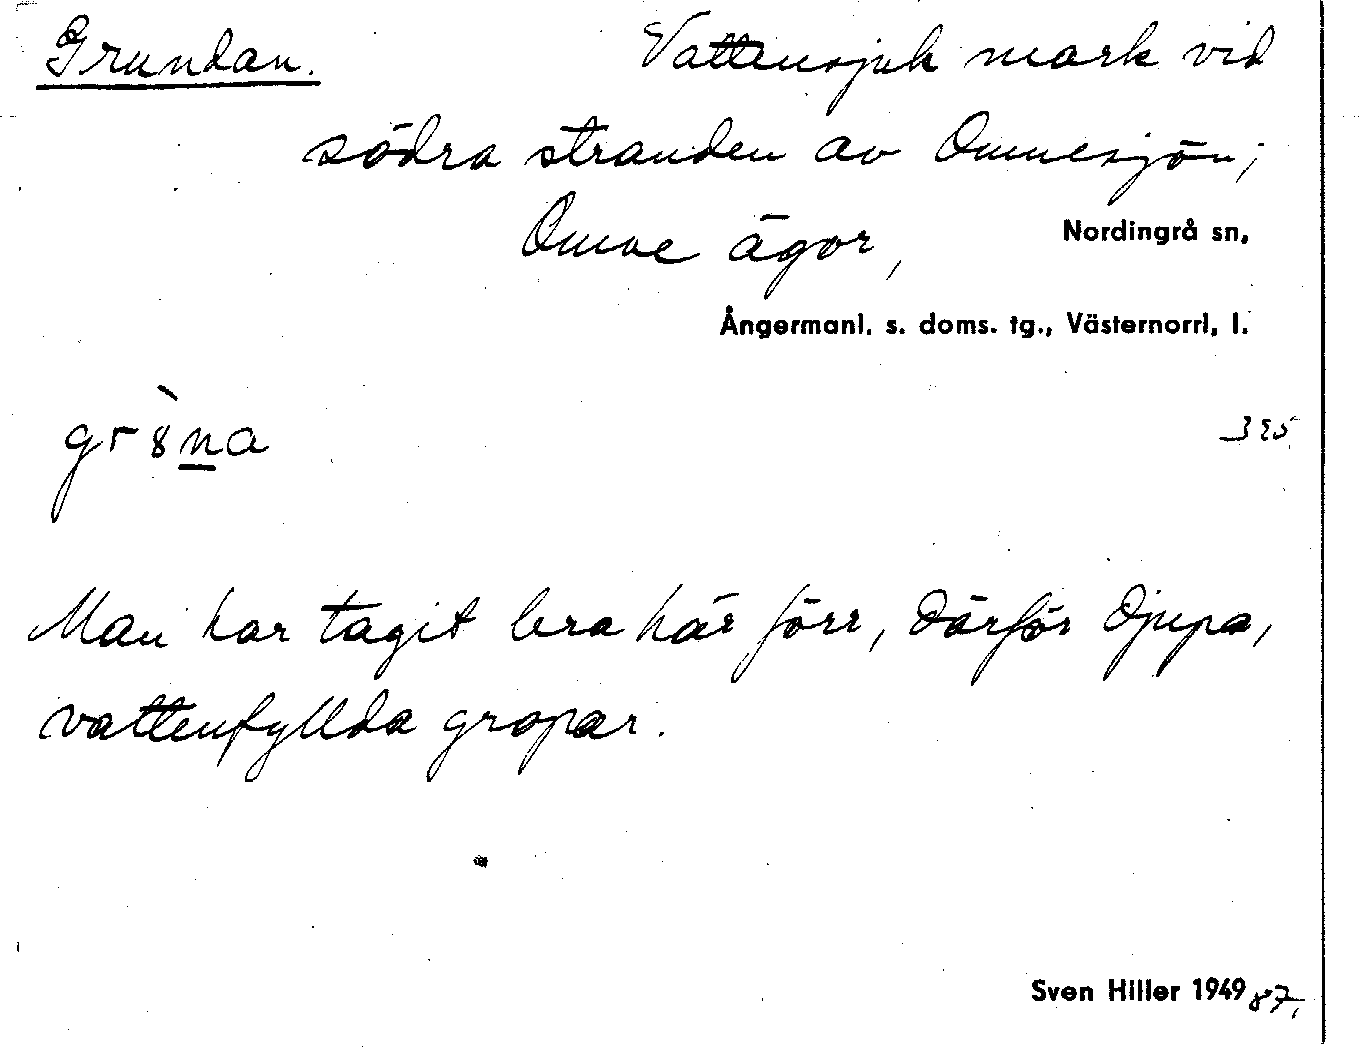 Grundan. Vattensjuk mark vid
södra stranden av Omnesjön;
Omne ägor, Nordingrå sn,
Ångermanl. s. doms. tg., Västernorrl. l.
gr8̀n̲a
Man har tagit lera här förr, därför djupa,
vattenfyllda gropar.
Sven Hiller 1949 87.